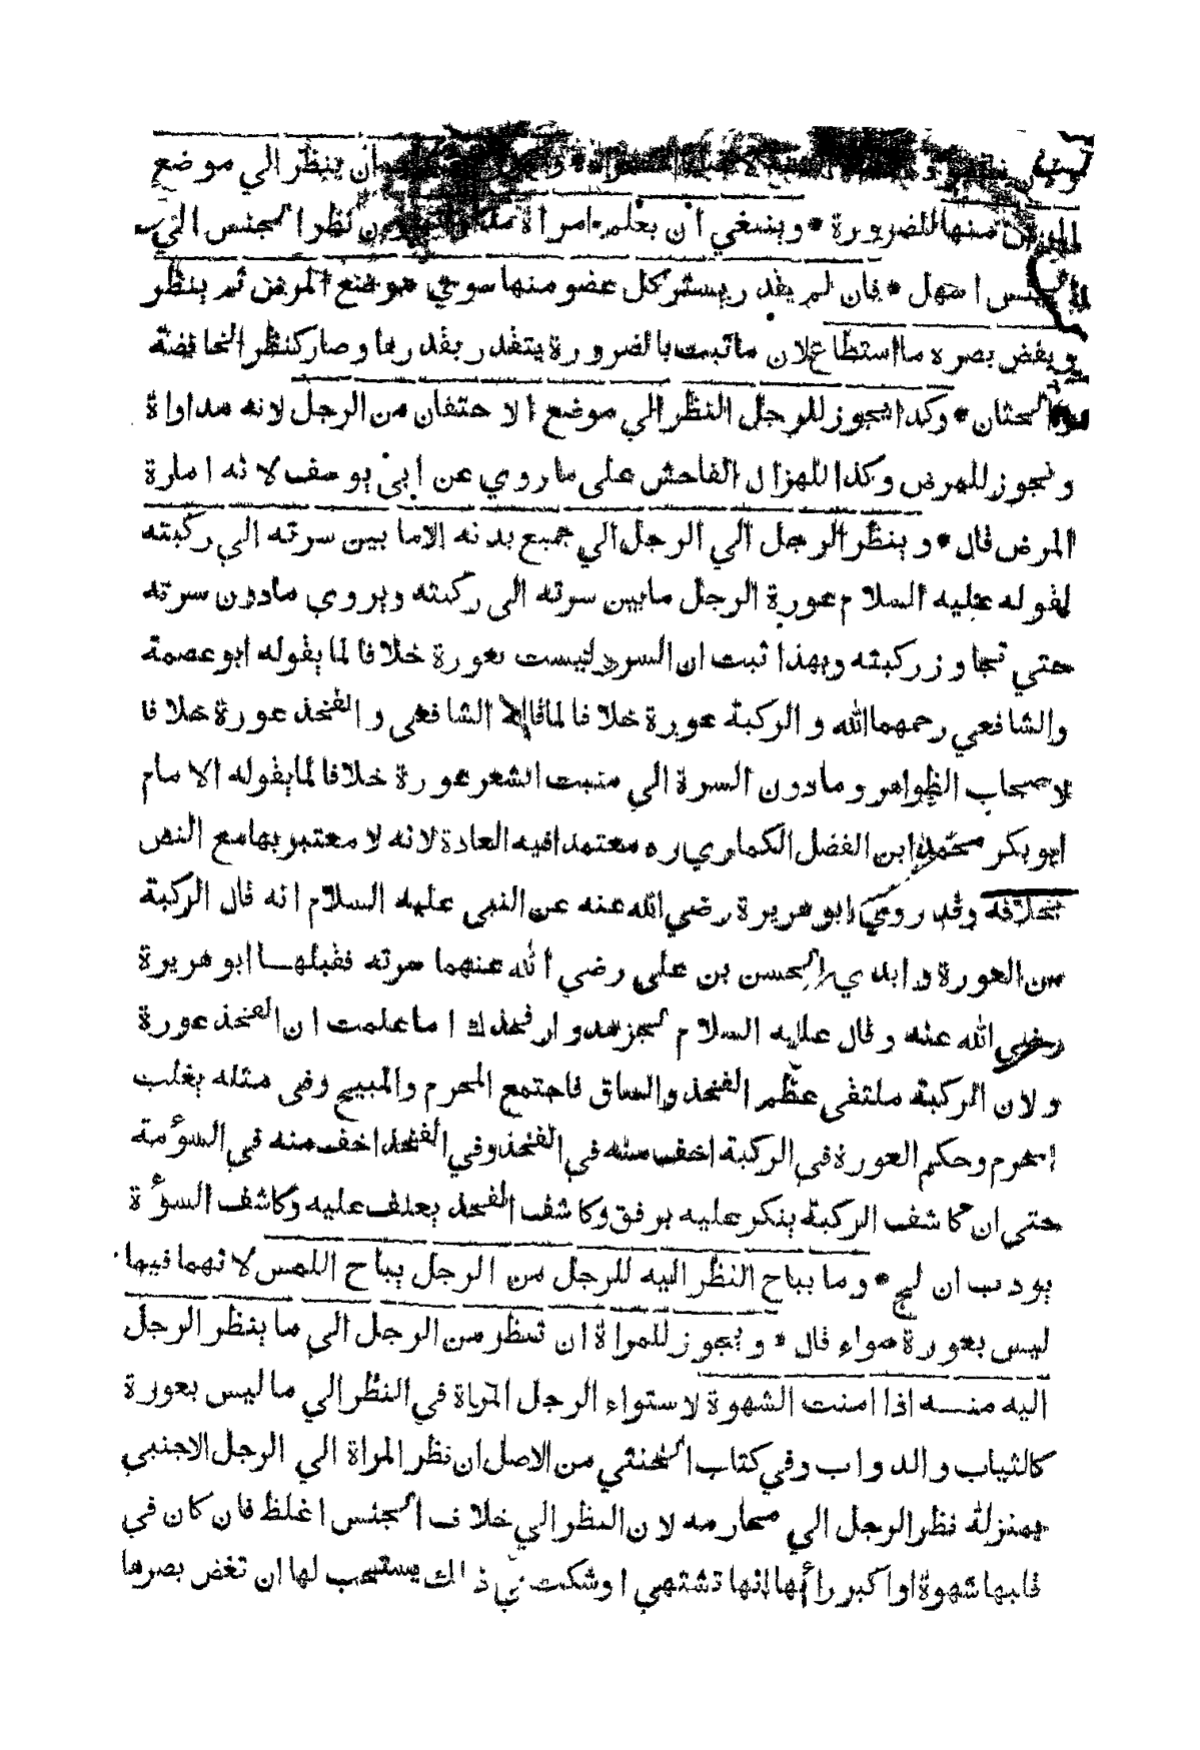 ان ينظر الي موضع
المرض منها للضرورة * وينبغي ان يعلم امراة لان نظر الجنس الي
الجنس اسهل * فان لم يقدر يستر كل عضو منها سوي موضع المرض ثم ينظر
ويغض بصره ما استطاع لان ما ثبت بالضرورة يتقدر بقدرها وصار كنظر الخافضة
والختان * وكذا يجوز للرجل النظر الي موضع الاحتقان من الرجل لانه مداواة
ويجوز للمرض وكذا للهزال الفاحش علي ما روي عن ابي يوسف لانه امارة
المرض قال * وينظر الرجل الي الرجل الي جميع بدنه الا ما بين سرته الي ركبته
لقوله عليه السلام عورة الرجل ما بين سرته الي ركبته ويروي ما دون سرته
حتي تجاوز ركبته وبهذا ثبت ان السرة ليست بعورة خلافا لما يقوله ابو عصمة
والشافعي رحمهما الله والركبة عورة خلافا لما قاله الشافعي والفخذ عورة خلافا
لاصحاب الظواهر وما دون السرة الي منبت الشعر عورة خلافا لما يقوله الامام
ابو بكر محمد ابن الفضل الكماري ره معتمدا فيه العادة لانه لا معتبر بها مع النص
بخلافه وقد روي ابو هريرة رضي الله عنه عن النبي عليه السلام انه قال الركبة
من العورة وابدي الحسن بن علي رضي الله عنهما سرته فقبلها ابو هريرة
رضي الله عنه وقال عليه السلام لجرهد وار فخذك اما علمت ان الفخذ عورة
ولان الركبة ملتقي عظم الفخذ والساق فاجتمع المحرم والمبيح وفي مثله يغلب
المحرم وحكم العورة في الركبة اخف منه في الفخذ وفي الفخذ اخف منه في السؤمة
حتي ان كاشف الركبة ينكر عليه برفق وكاشف الفخذ يعنف عليه وكاشف السؤة
يودب ان لج * وما يباح النظر اليه للرجل من الرجل يباح اللمس لانهما فيما
ليس بعورة سواء قال * ويجوز للمراة ان تنظر من الرجل الي ما ينظر الرجل
اليه منه اذا امنت الشهوة لاستواء الرجل المراة في النظر الي ما ليس بعورة
كالثياب والدواب وفي كتاب الخنثي من الاصل ان نظر المراة الي الرجل الاجنبي
بمنزلة نظر الرجل الي محارمه لان النظر الي خلاف الجنس اغلظ فان كان في
قلبها شهوة او اكبر رأيها انها تشتهي او شكت في ذالك يستحب لها ان تغض بصرها